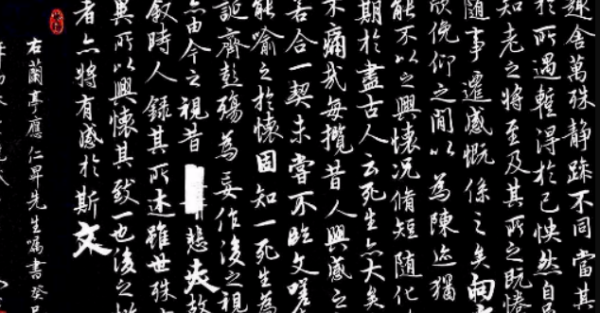 趣舍萬殊静躁不同當其
於所遇輒得於己怏然自
知老之將至及其所之既惓
隨事遷感慨係之矣向
欣俛仰之閒以為陳迹猶
能不以之興懷況脩短隨化
期於盡古人云死生亦大矣
不痛哉每攬昔人興感之
若合一契未嘗不臨文嗟
能喻之於懷固知一死生為
誕齊彭殤為妄作後之視
亦由今之視昔悲夫故
叙時人録其所述雖世殊
異所以興懷其致一也後之
者亦將有感於斯文
右蘭亭應仁昇先生囑書癸